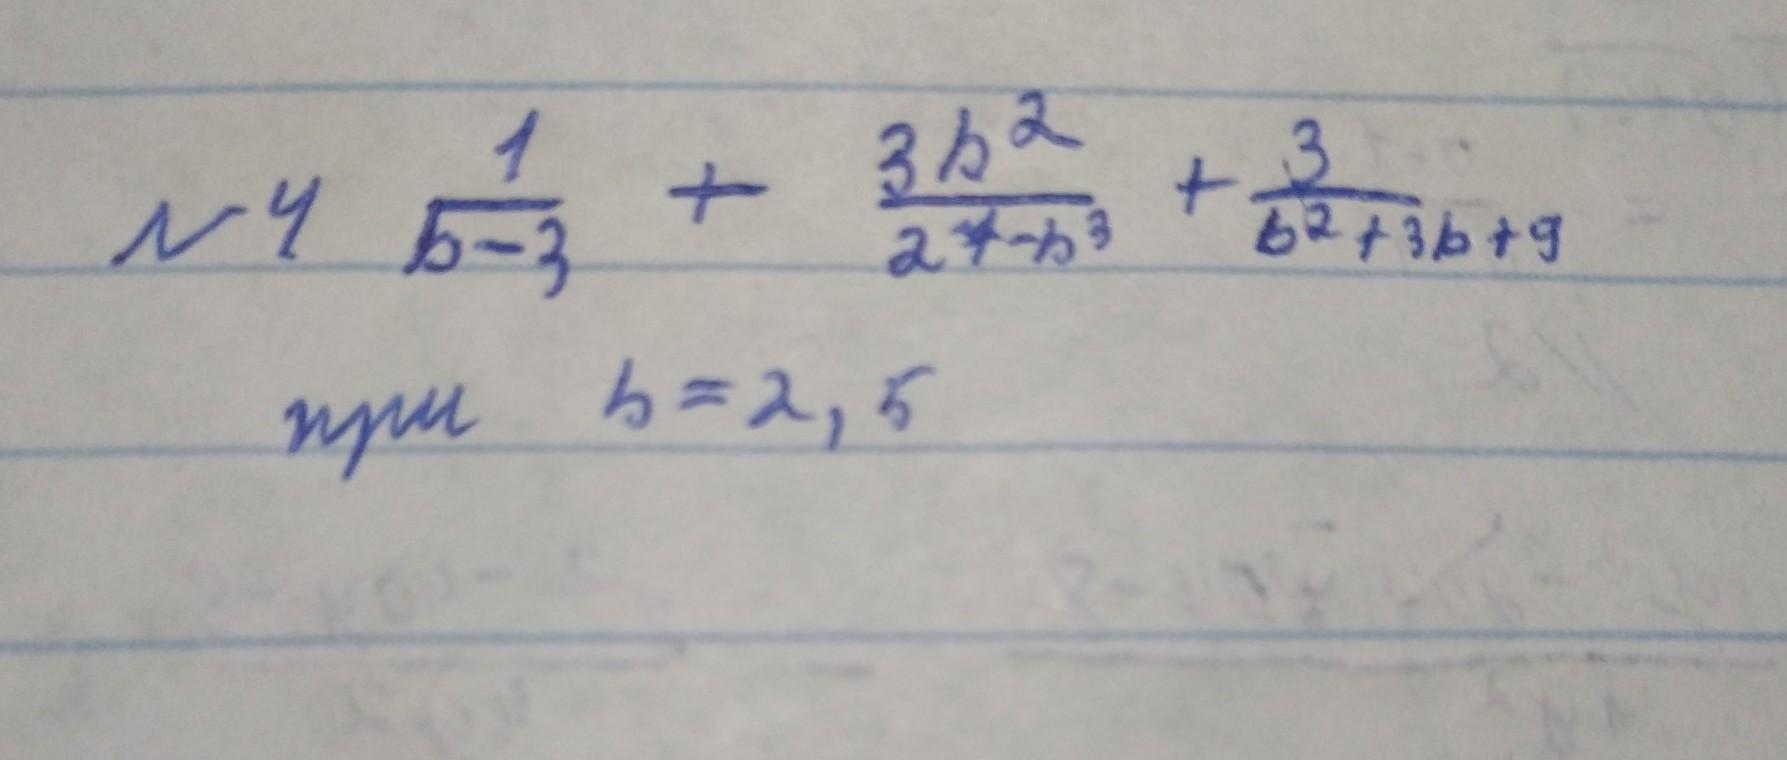 №4 1/(b-3) + 3b²/(27-b³) + 3/(b²+3b+9) =
при b=2,5